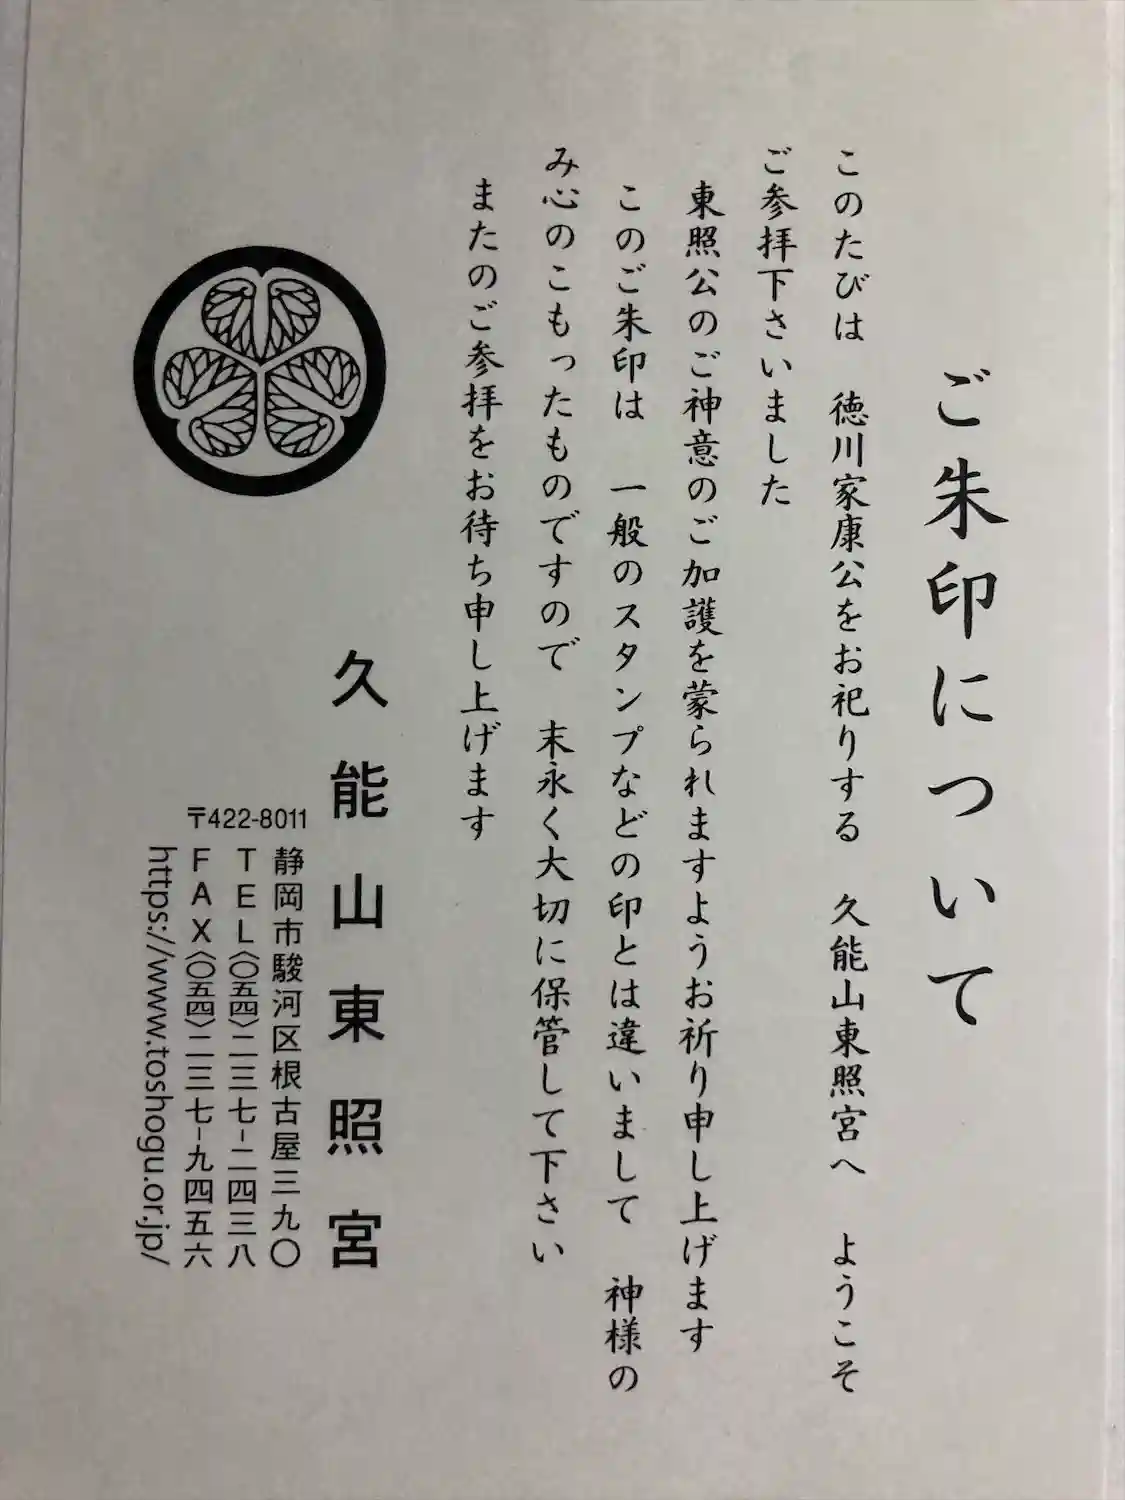 ご朱印について
このたびは 徳川家康公をお祀りする 久能山東照宮へ ようこそ
ご参拝下さいました
東照公のご神意のご加護を蒙られますようお祈り申し上げます
このご朱印は 一般のスタンプなどの印とは違いまして 神様の
み心のこもったものですので 末永く大切に保管して下さい
またのご参拝をお待ち申し上げます
久能山東照宮
〒422-8011
静岡市駿河区根古屋三九〇
TEL〈〇五四〉二三七-二四三八
FAX〈〇五四〉二三七-九四五六
https://www.toshogu.or.jp/